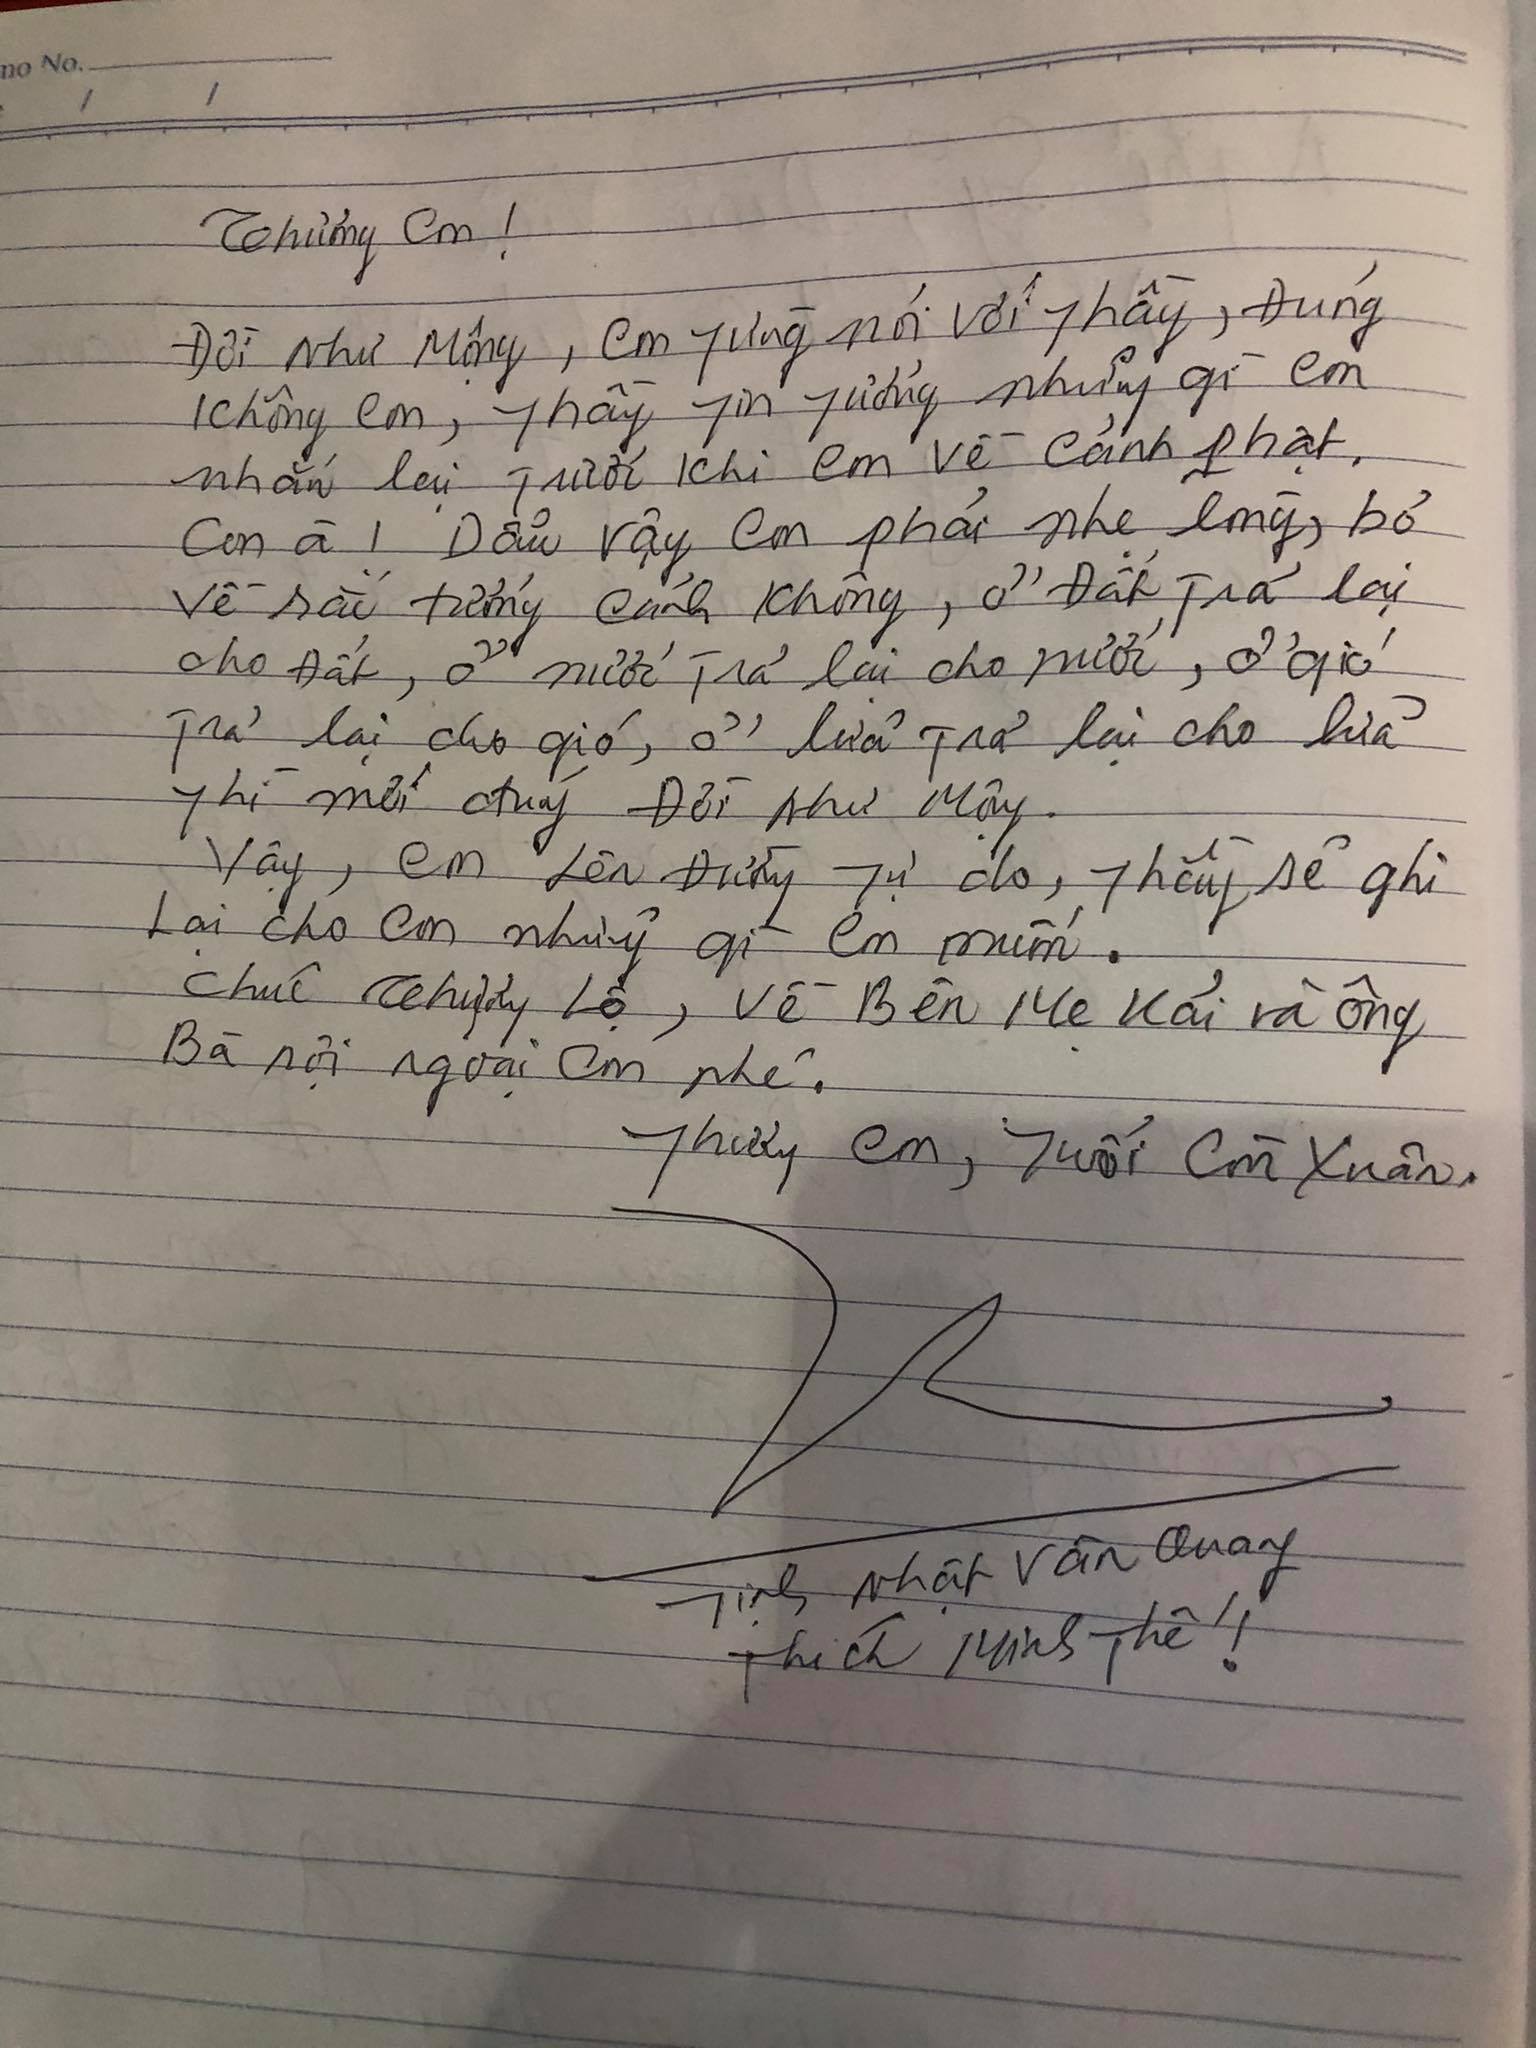 no No.
/ /
Thương em!
Đời như Mộng, em từng nói với thầy, Đúng
không em, thầy tin tưởng những gì em
nhắn lại trước khi em về cảnh phật.
Con à! Dẫu vậy em phải nhẹ lòng, bỏ
về sắc tướng cảnh không, ở Đất trả lại
cho Đất, ở nước trả lại cho nước, ở gió
trả lại cho gió, ở lửa trả lại cho lửa
thì mới Đời như Mộng.
Vậy, em lên Đường tự do, thầy sẽ ghi
lại cho em những gì em muốn.
Chúc Thượng Lộ, về Bên Mẹ Kải và ông
Bà nội ngoại em nhé.
Thương em, Tuổi Còn Xuân.
Tịnh Nhật Vân Quang
Thích Minh Thế!